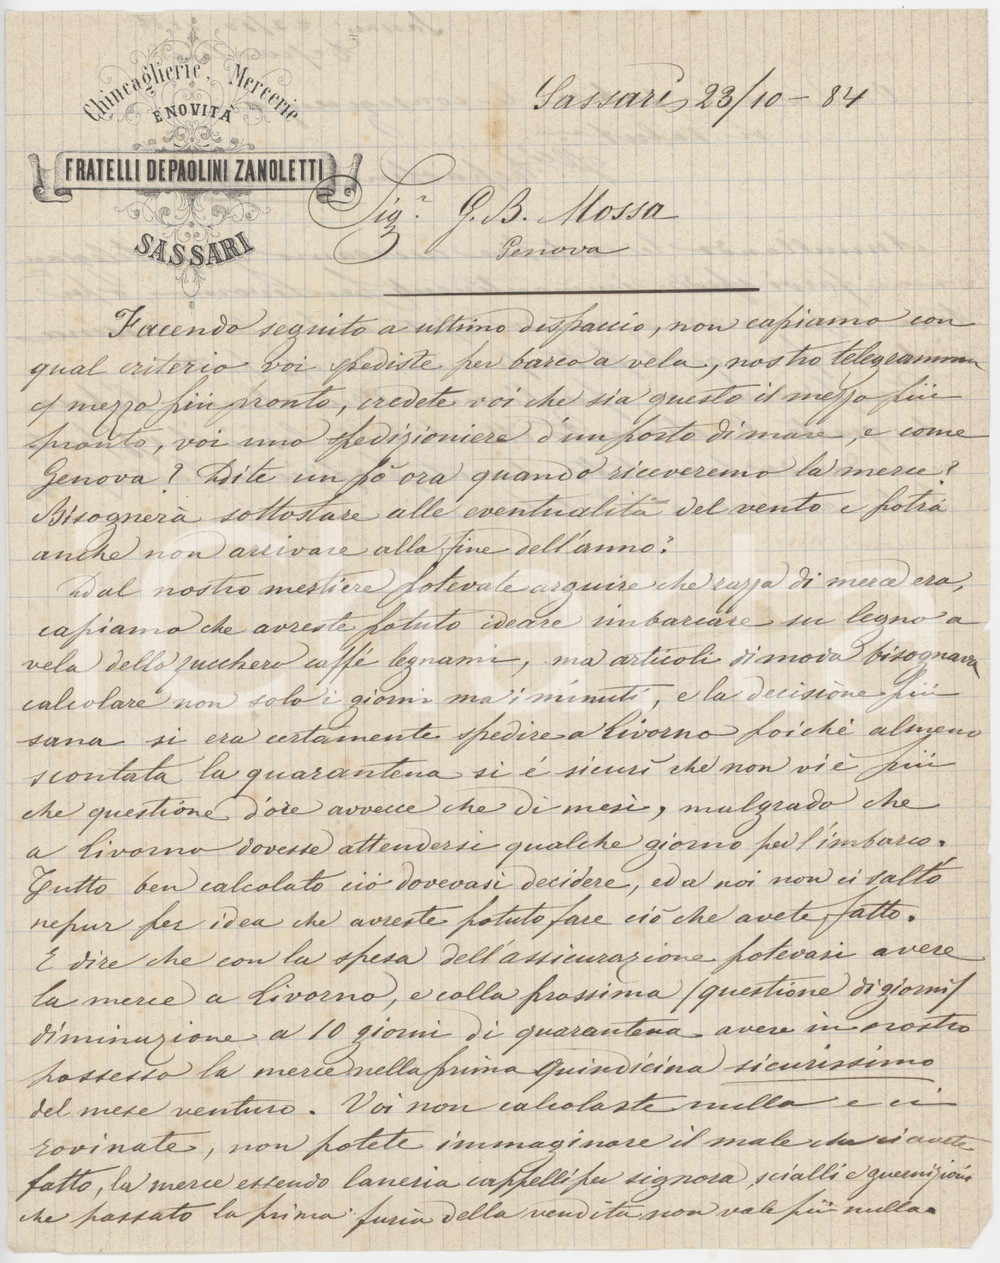 Chincaglierie, Mercerie
E NOVITÀ
FRATELLI DEPAOLINI ZANOLETTI
SASSARI
Sassari, 23/10 - 84
Sig.r G. B. Mossa
Genova
Facendo seguito a ultimo dispaccio, non capiamo con
qual criterio voi spediste per barco a vela, nostro telegramma
c/ mezzo più pronto, credete voi che sia questo il mezzo più
pronto, voi uno spedizioniere d'un porto di mare, e come
Genova? Dite un pò ora quando riceveremo la merce?
Bisognerà sottostare alle eventualità del vento e potrà
anche non arrivare alla fine dell'anno?
Dal nostro mestiere potevate arguire che razza di merce era,
capiamo che avreste potuto ideare imbarcare su legno a
vela dello zucchero caffé legnami, ma articoli di moda bisognava
calcolare non solo i giorni ma i minuti, e la decisione più
sana si era certamente spedire a Livorno poiché almeno
scontata la quarantena si é sicuri che non vi è più
che questione d'ore avvece che di mesi, malgrado che
a Livorno dovesse attendersi qualche giorno per l'imbarco.
Tutto ben calcolato ciò dovevasi decidere, ed a noi non ci saltò
nepur per idea che avreste potuto fare ciò che avete fatto.
E dire che con la spesa dell'assicurazione potevasi avere
la merce a Livorno, e colla prossima (questione di giorni)
diminuzione a 10 giorni di quarantena avere in nostro
possesso la merce nella prima quindicina sicurissimo
del mese venturo. Voi non calcolaste nulla e ci
rovinate, non potete immaginare il male che ci avete
fatto, la merce essendo laneria cappelli per signora, scialli e guernizioni
che passato la prima furia della vendita non vale più nulla.